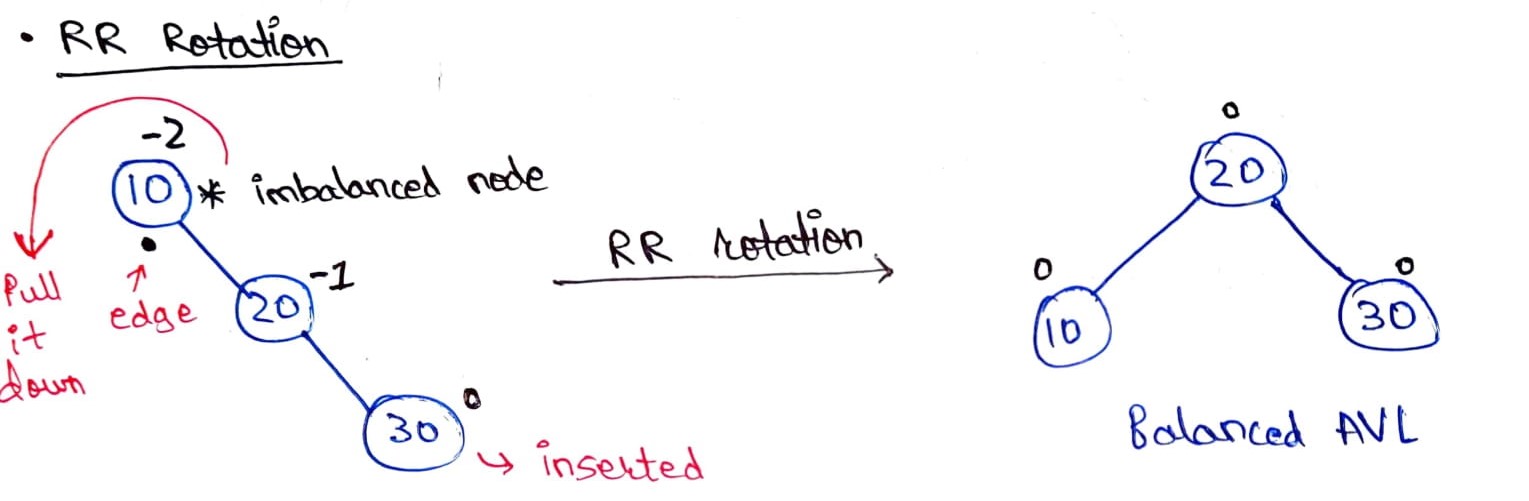 • RR Rotation
-2
10 * imbalanced node
Pull
it
down
edge
20 -1
30 0
inserted
RR rotation
0
20
0
10
0
30
Balanced AVL